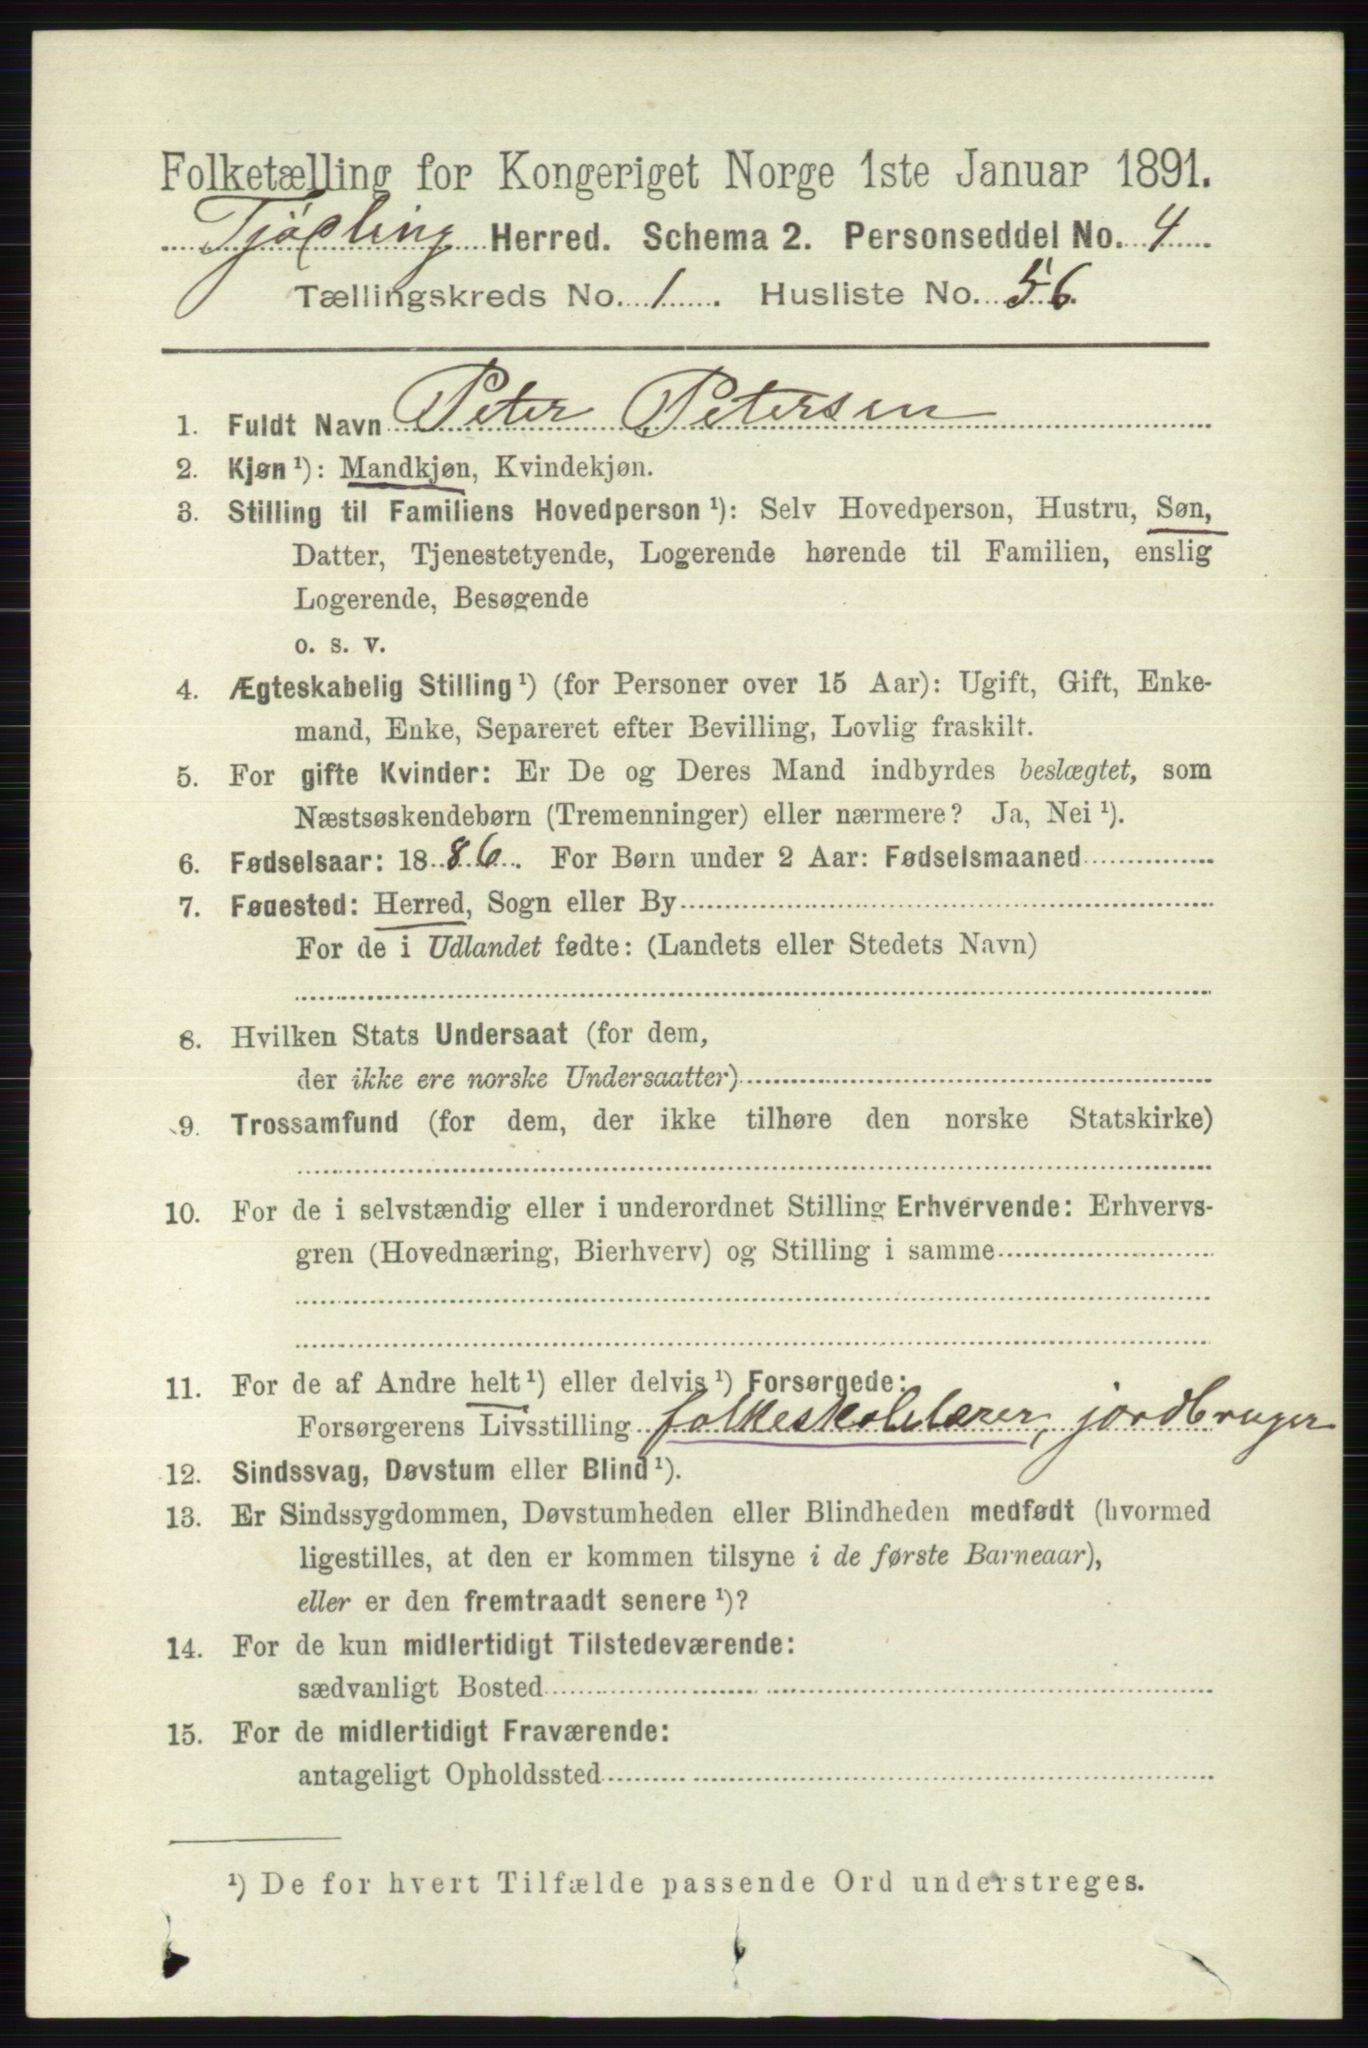 Folketælling for Kongeriget Norge 1ste Januar 1891.
Tjøcling Herred. Schema 2. Personseddel No. 4
Tællingskreds No. 1. Husliste No. 56.
1. Fuldt Navn Peter Petersen
2. Kjøn ¹): Mandkjøn, Kvindekjøn.
3. Stilling til Familiens Hovedperson ¹): Selv Hovedperson, Hustru, Søn,
Datter, Tjenestetyende, Logerende hørende til Familien, enslig
Logerende, Besøgende
o. s. v.
4. Ægteskabelig Stilling ¹) (for Personer over 15 Aar): Ugift, Gift, Enke-
mand, Enke, Separeret efter Bevilling, Lovlig fraskilt.
5. For gifte Kvinder: Er De og Deres Mand indbyrdes beslægtet, som
Næstsøskendebørn (Tremenninger) eller nærmere? Ja, Nei ¹).
6. Fødselsaar: 1886. For Børn under 2 Aar: Fødselsmaaned
7. Fødested: Herred, Sogn eller By
For de i Udlandet fødte: (Landets eller Stedets Navn)
8. Hvilken Stats Undersaat (for dem,
der ikke ere norske Undersaatter)
9. Trossamfund (for dem, der ikke tilhøre den norske Statskirke)
10. For de i selvstændig eller i underordnet Stilling Erhvervende: Erhvervs-
gren (Hovednæring, Bierhverv) og Stilling i samme
11. For de af Andre helt ¹) eller delvis ¹) Forsørgede:
Forsørgerens Livsstilling folkeskolelærer, jordbruger
12. Sindssvag, Døvstum eller Blind ¹).
13. Er Sindssygdommen, Døvstumheden eller Blindheden medfødt (hvormed
ligestilles, at den er kommen tilsyne i de første Barneaar),
eller er den fremtraadt senere ¹)?
14. For de kun midlertidigt Tilstedeværende:
sædvanligt Bosted
15. For de midlertidigt Fraværende:
antageligt Opholdssted
¹) De for hvert Tilfælde passende Ord understreges.